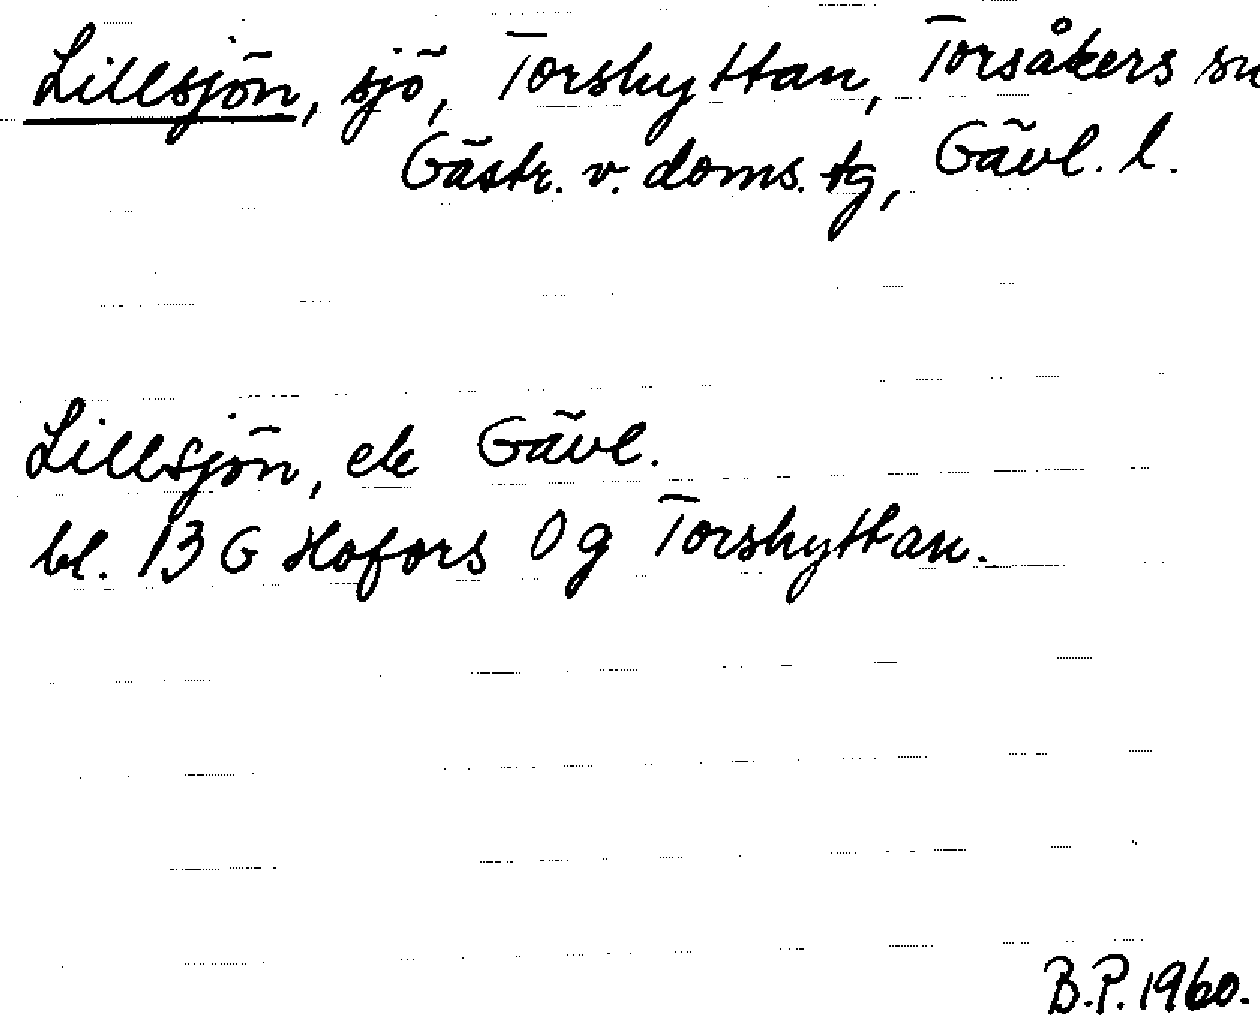 Lillsjön, sjö, Torshyttan, Torsåkers sn
Gästr. v. doms. tg, Gävl. l.
Lillsjön, ek Gävl.
bl. 13 G Hofors 0 g Torshyttan.
B.P. 1960.